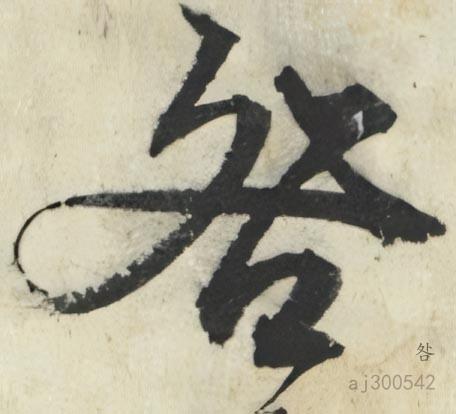 咎
咎
aj300542